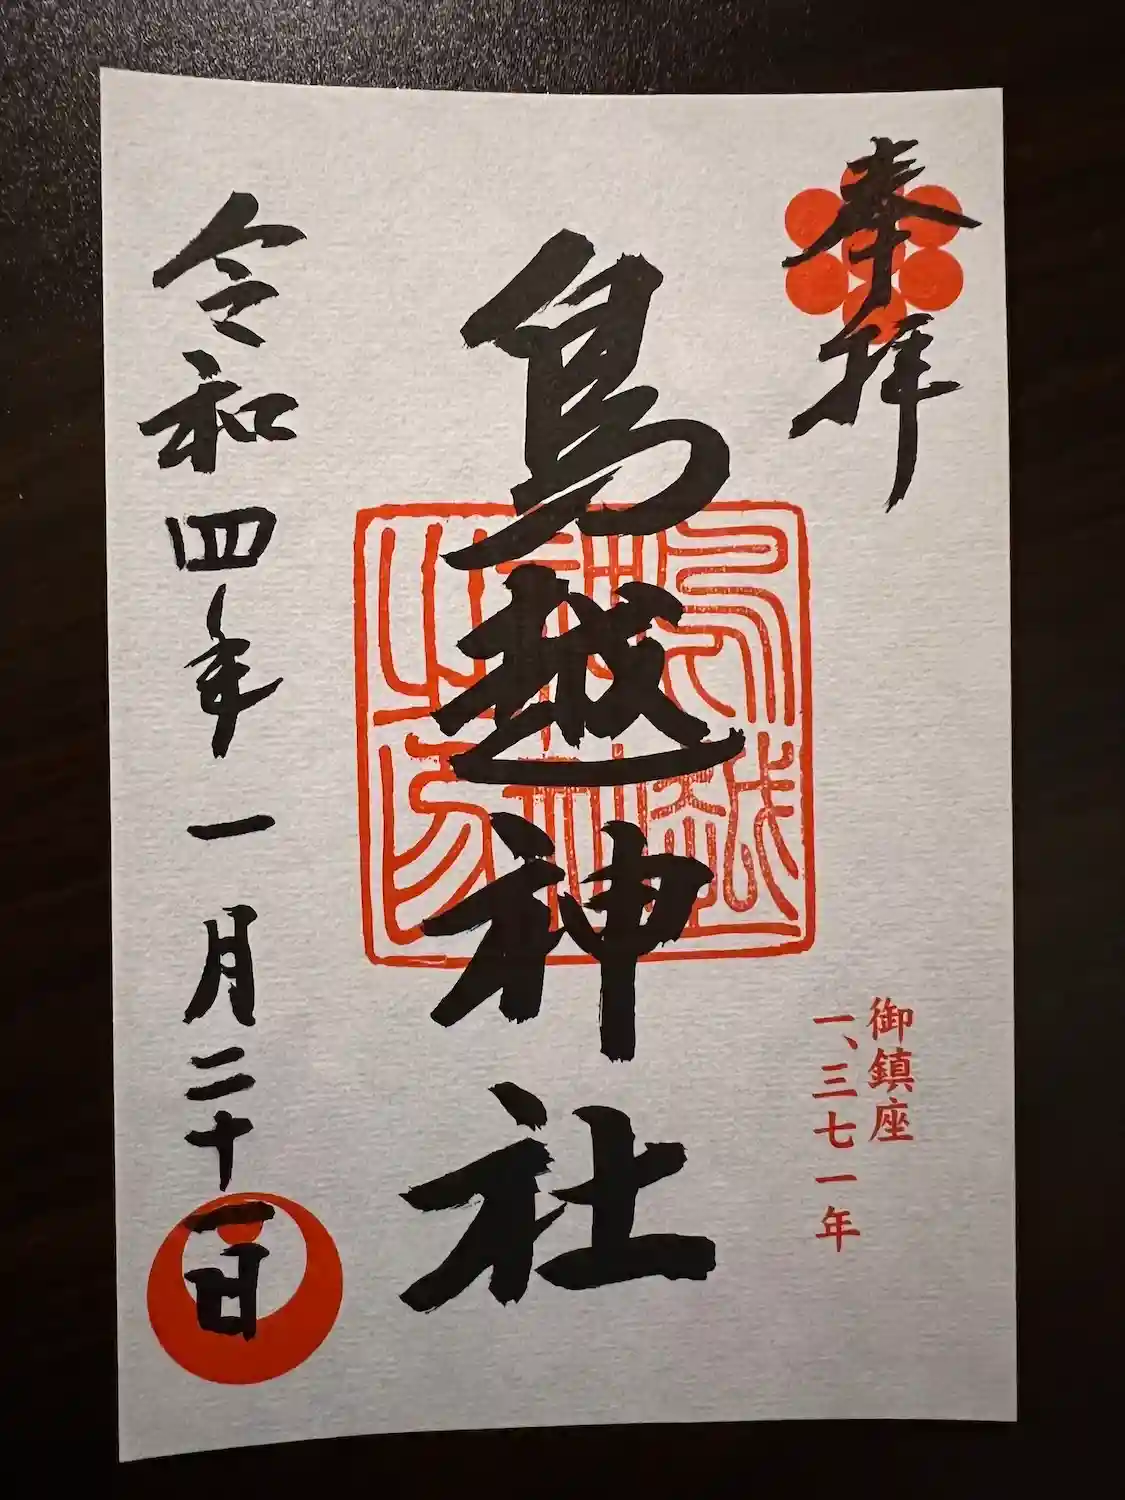 奉拝
御鎮座
一、三七一年
鳥越神社
鳥越神社之印
令和四年一月二十一日